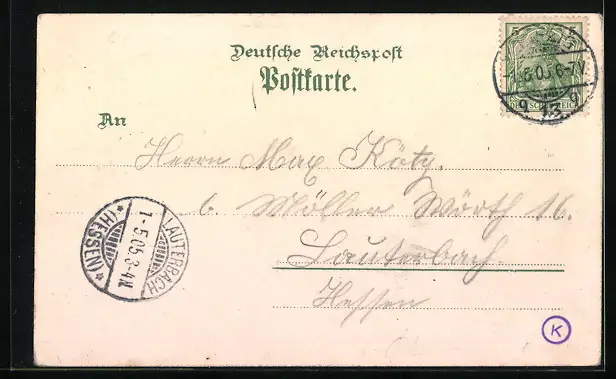 Deutsche Reichspost
Postkarte.
5
-1.5.05.6-7V
9 13. 9
DEUTSCHES REICH
An
Herrn Max Kötz.
b. Möller Wörth 16.
Lauterbach
Hessen
LAUTERBACH
1-5.05.3-4N
* (HESSEN) *
K